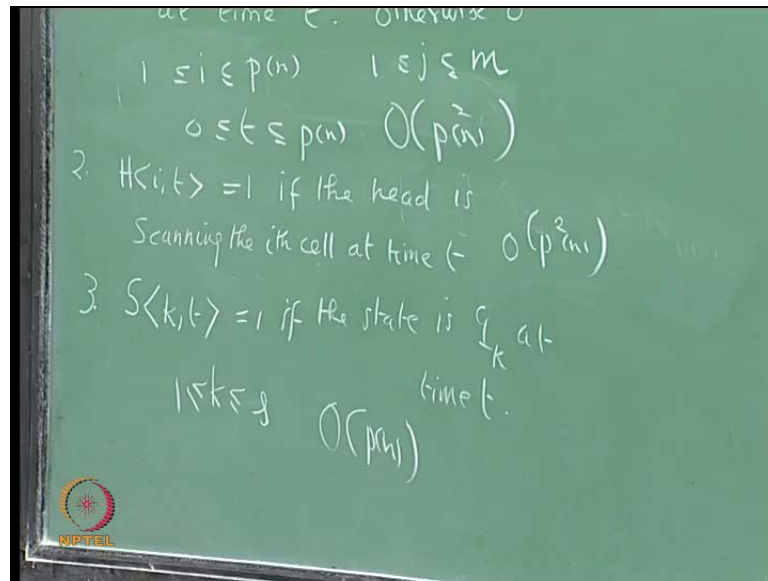 at time t. Otherwise 0
1 ≤ i ≤ p(n) 1 ≤ j ≤ m
0 ≤ t ≤ p(n) O(p²(n))
2. H<i,t> = 1 if the head is
Scanning the ith cell at time t O(p²(n))
3. S<k,t> = 1 if the state is q_k at
time t.
1 ≤ k ≤ s O(p(n))
NPTEL